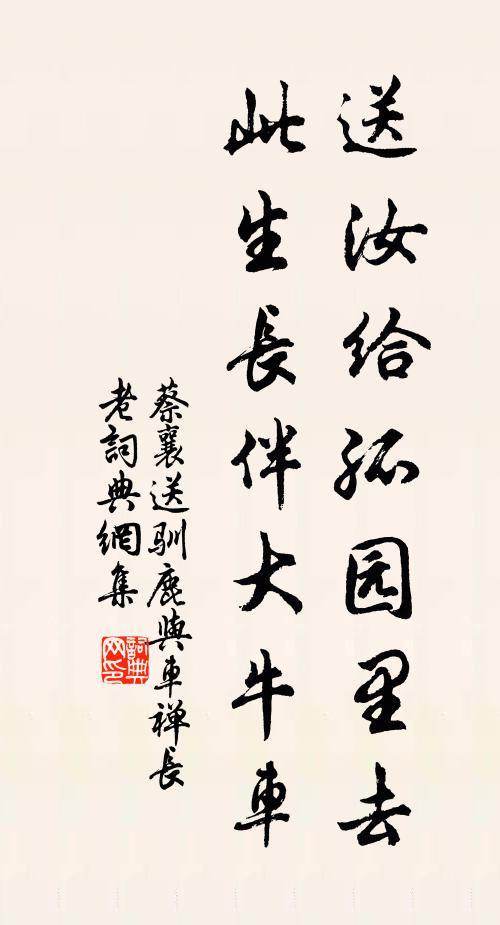 送汝给孤园里去
此生長伴大牛車
蔡襄送馴鹿與車禅長
老詞典網集
詞典网印